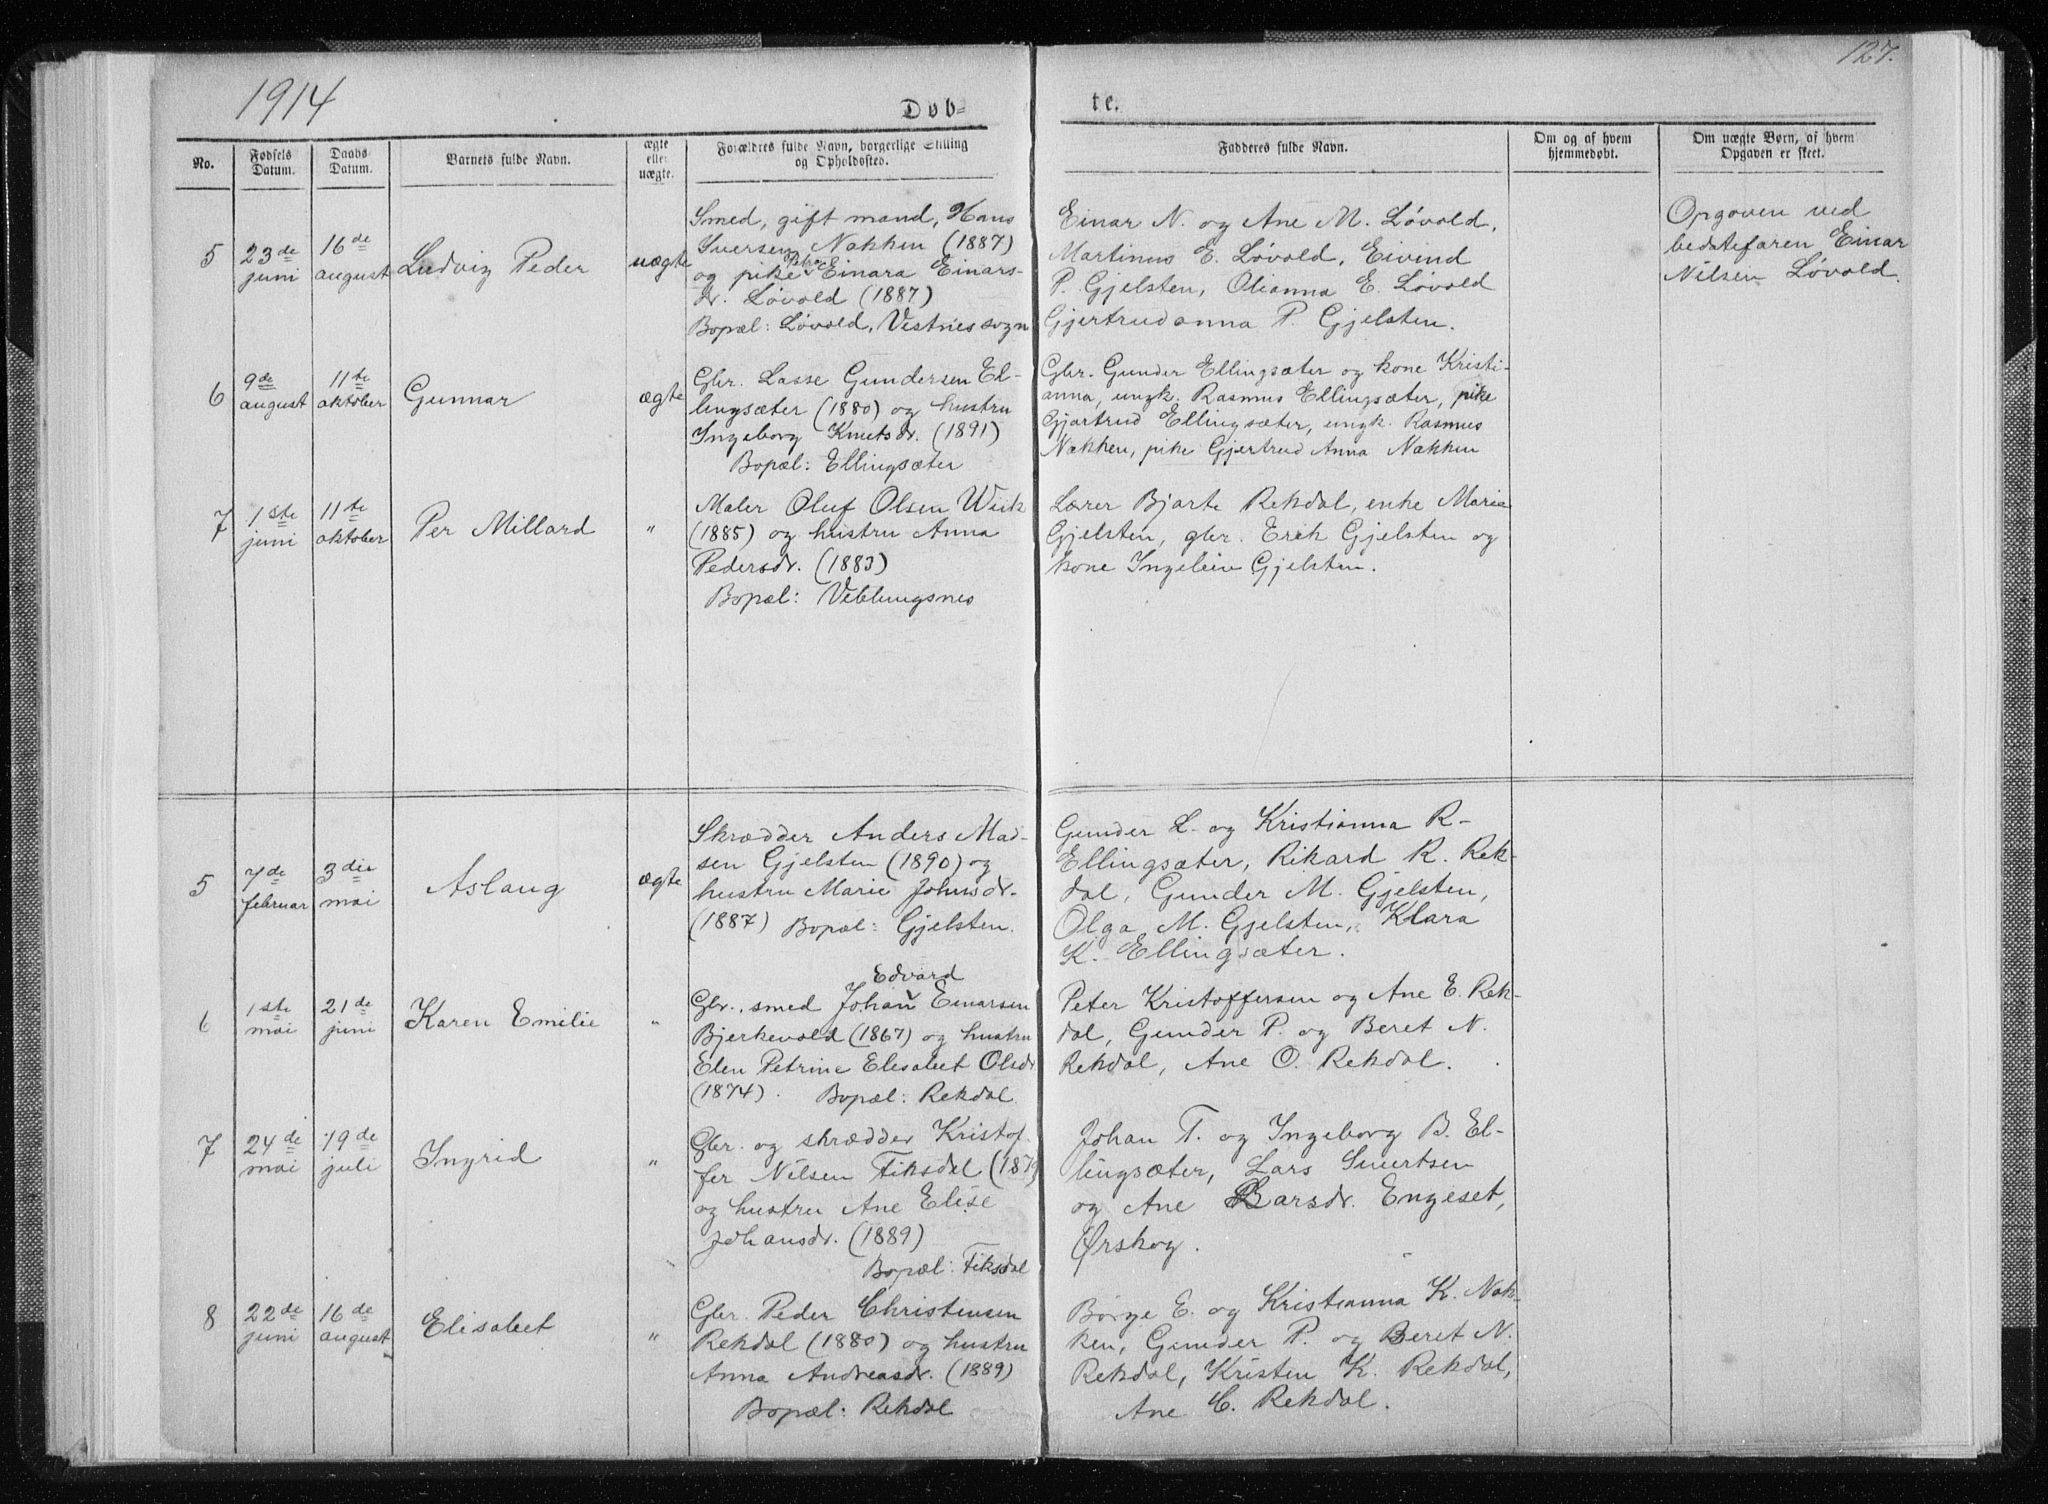 1914
127.
Døb=
te.
No.
Fødsels Datum.
Daabs Datum.
Barnets fulde Navn.
ægte eller uægte.
Forældres fulde Navn, borgerlige Stilling og Opholdssted.
Fadderes fulde Navn.
Om og af hvem hjemmedøbt.
Om uægte Børn, af hvem Opgaven er skeet.
5
23de juni
16de august
Ludvig Peder
uægte
Smed, gift mand, Hans
Sversen Nakken (1887)
og pike Petra Einara Einars-
dr. Løvold (1887)
Bopæl: Løvold, Vestnes sogn
Einar N. og Ane M. Løvold,
Martinus E. Løvold, Eivind
P. Gjelsten, Olianna E. Løvold
Gjertrudanna P. Gjelsten.
Opgaven ved
bedstefaren Einar
Nilsen Løvold.
6
9de august
11te oktober
Gunnar
ægte
Gbr. Lasse Gundersen El-
lingsæter (1880) og hustru
Ingeborg Knutsdr. (1891)
Bopæl: Ellingsæter
Gbr. Gunder Ellingsæter og kone Kristi-
anna, ungk. Rasmus Ellingsæter, pike
Gjertrud Ellingsæter, ungk. Rasmus
Nakken, pike Gjertrud Anna Nakken
7
1ste juni
11te oktober
Per Millard
"
Maler Oluf Olsen Wiik
(1885) og hustru Anna
Pedersdr. (1883)
Bopæl: Veblungsnes
Lærer Bjarte Rekdal, enke Marie
Gjelsten, gbr. Erik Gjelsten og
kone Ingelein Gjelsten.
5
7de februar
3die mai
Aslaug
ægte
Skrædder Anders Mad-
sen Gjelsten (1890) og
hustru Marie Johnsdr.
(1887) Bopæl: Gjelsten.
Gunder L. og Kristianna R-
Ellingsæter, Rikard R. Rek-
dal, Gunder M. Gjelsten,
Olga M. Gjelsten, Klara
K. Ellingsæter.
6
1ste mai
21de juni
Karen Emilie
"
Edvard
Gbr., smed Johan Einarsen
Bjerkevold (1867) og hustru
Elen Petrine Elisabet Olsdr
(1874). Bopæl: Rekdal.
Peter Kristoffersen og Ane E. Rek-
dal, Gunder P. og Beret N.
Rekdal, Ane O. Rekdal.
7
24de mai
19de juli
Ingrid
"
Gbr. og skrædder Kristof-
fer Nilsen Fiksdal (1879)
og hustru Ane Elise
Johansdr. (1889)
Bopæl: Fiksdal
Johan T. og Ingeborg B. El-
lingsæter, Lars Sivertsen
og Ane Larsdr. Engeset,
Ørskog.
8
22de juni
16de august
Elisabet
"
Gbr Peder Christensen
Rekdal (1880) og hustru
Anna Andreasdr. (1889)
Bopæl: Rekdal
Børge E. og Kristianna K. Nak-
ken, Gunder P. og Beret N.
Rekdal, Kristen K. Rekdal,
Ane C. Rekdal.